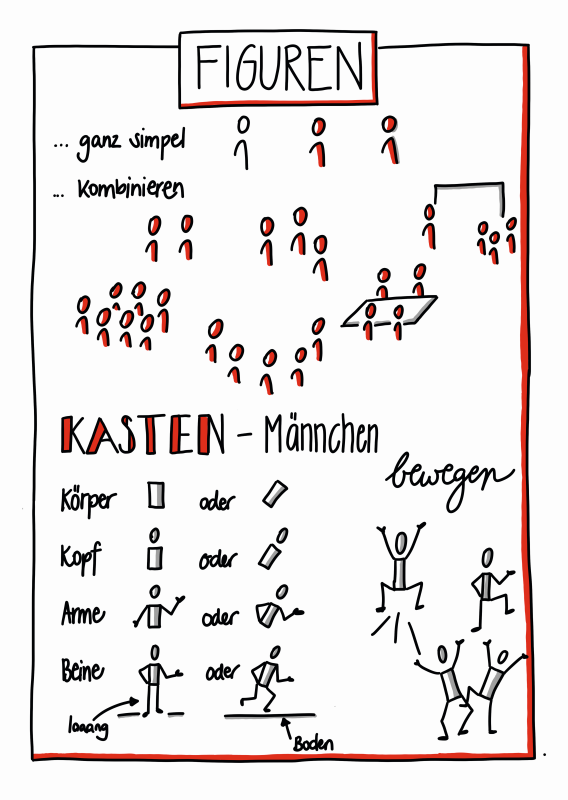 FIGUREN
... ganz simpel
... Kombinieren
KASTEN - Männchen
bewegen
Körper oder
Kopf oder
Arme oder
Beine oder
looang
Boden